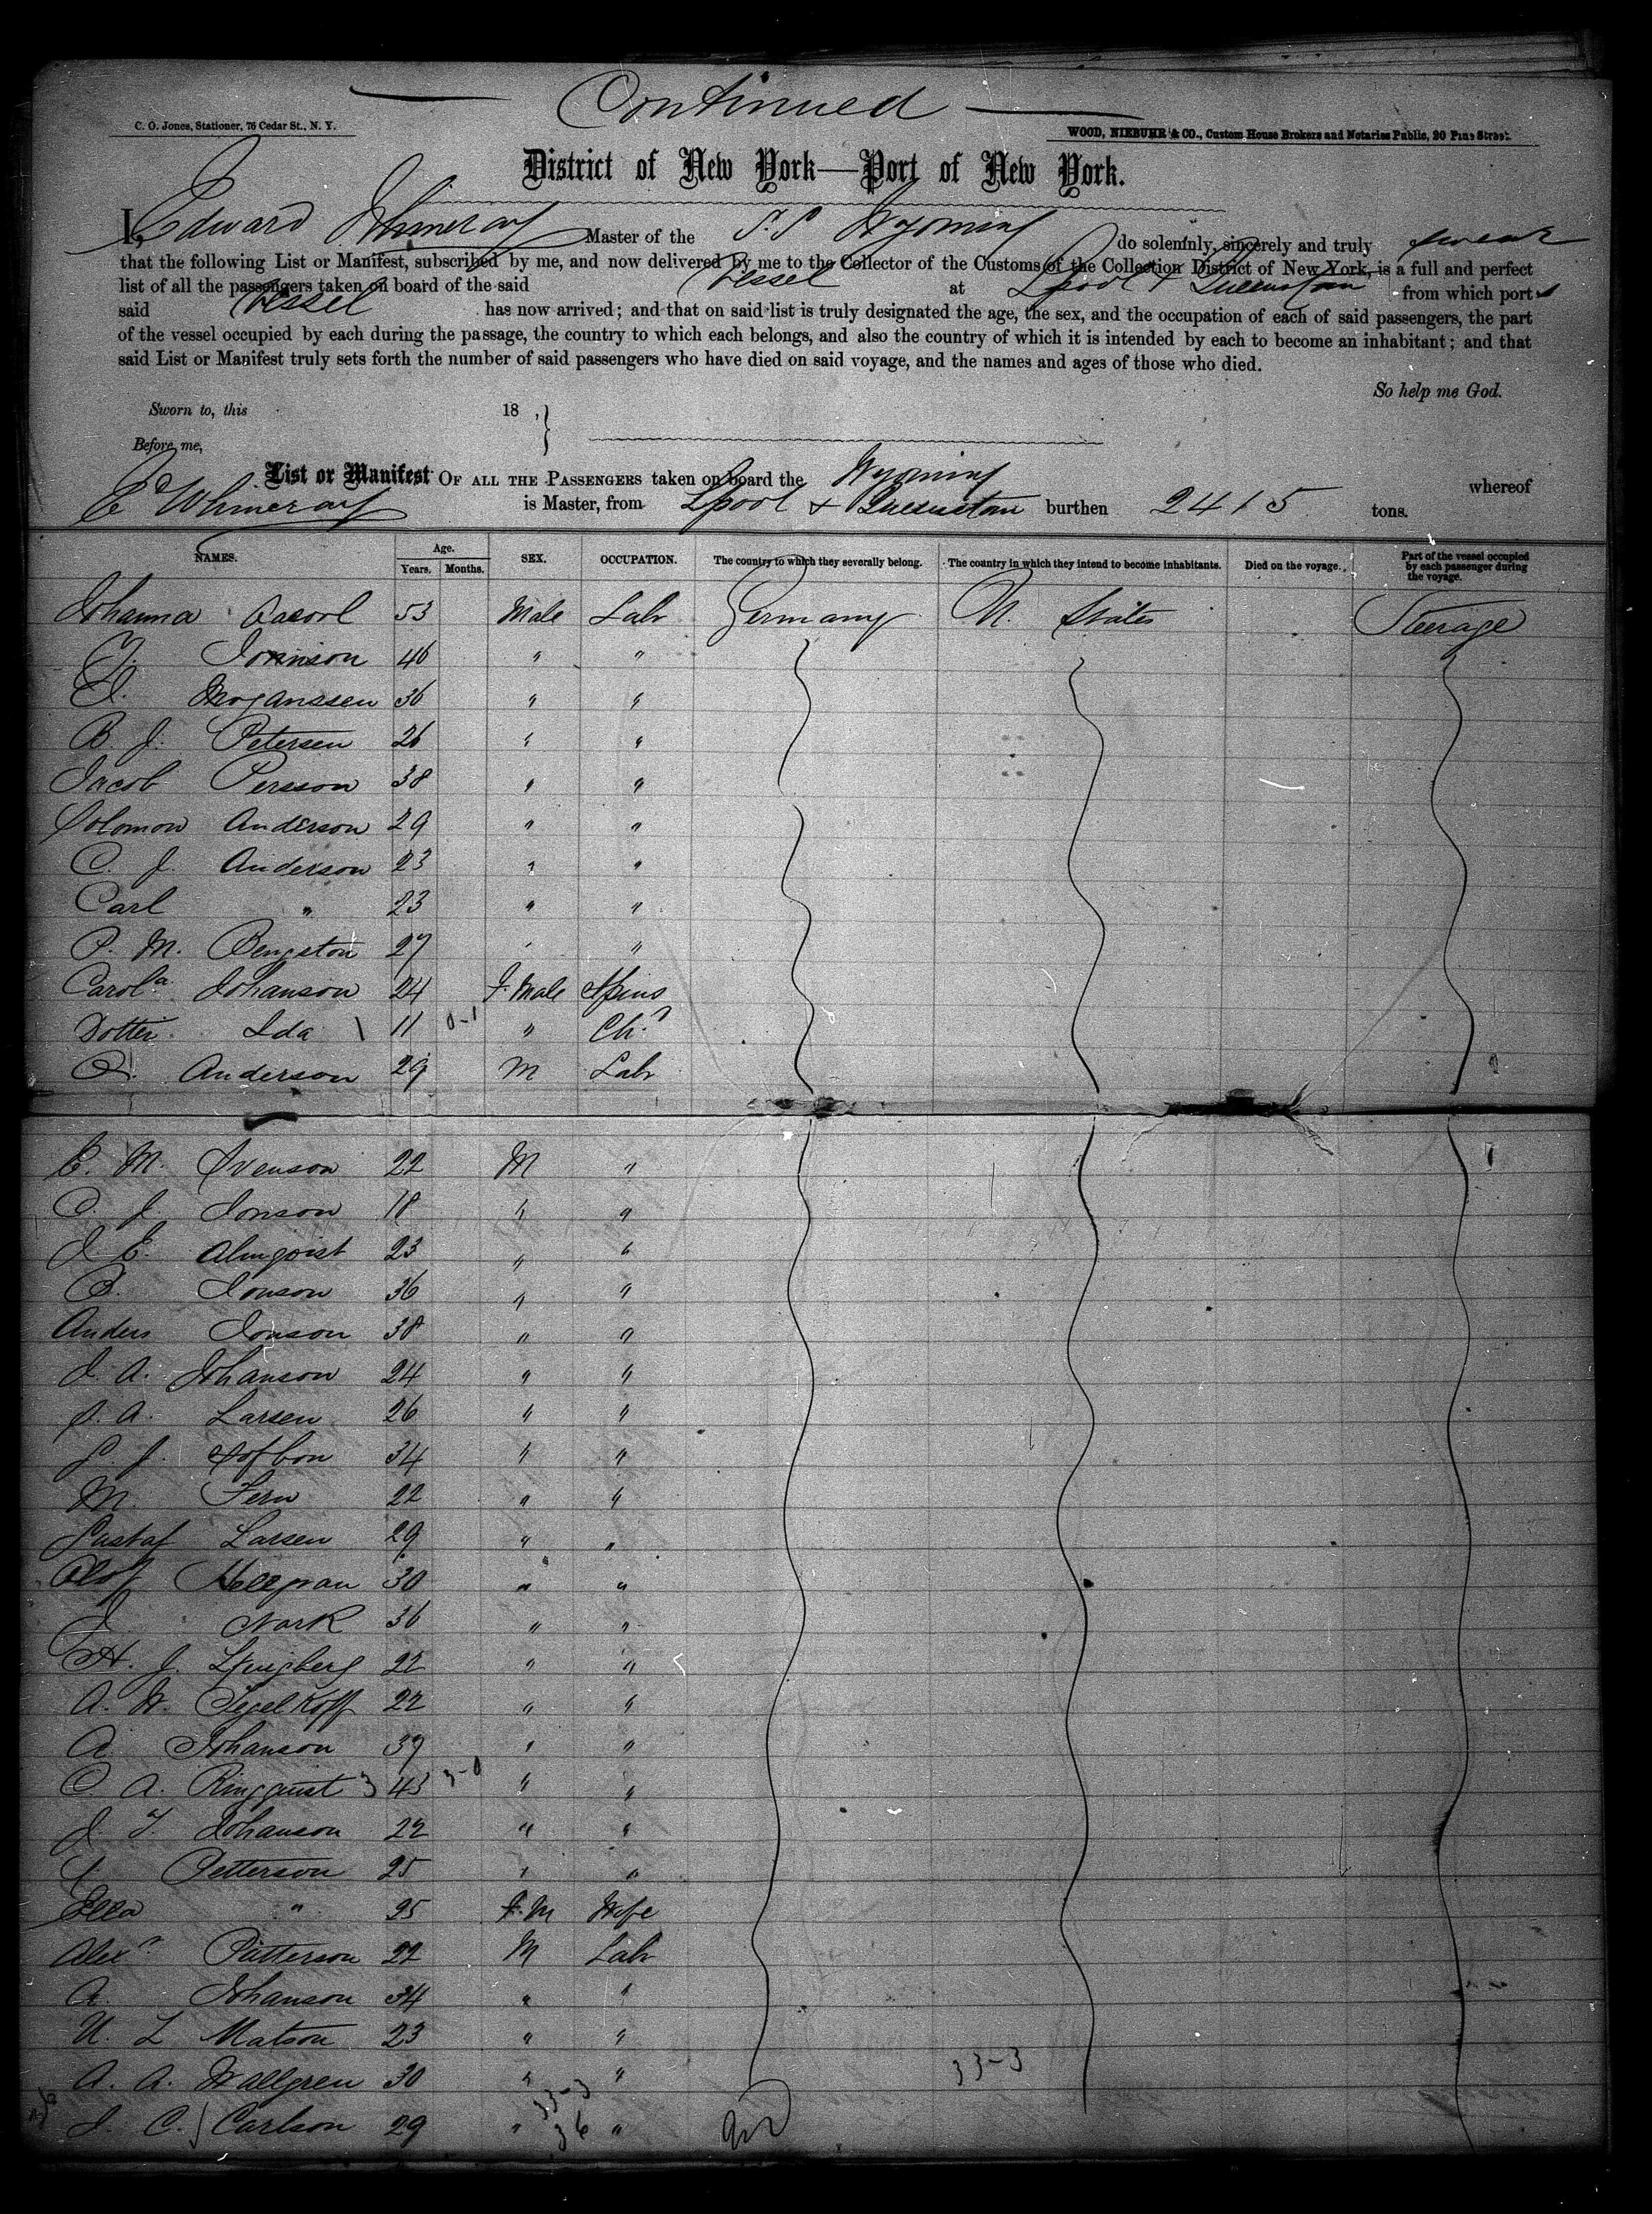 Continued
C. O. Jones, Stationer, 76 Cedar St., N. Y.
WOOD, NIEBUHR & CO., Custom House Brokers and Notaries Public, 20 Pine Street.
District of New York—Port of New York.
I, Edward Whineray Master of the S.S Wyoming do solemnly, sincerely and truly swear
that the following List or Manifest, subscribed by me, and now delivered by me to the Collector of the Customs of the Collection District of New York, is a full and perfect
list of all the passengers taken on board of the said Vessel at Lpool + Queenstown from which port
said Vessel has now arrived; and that on said list is truly designated the age, the sex, and the occupation of each of said passengers, the part
of the vessel occupied by each during the passage, the country to which each belongs, and also the country of which it is intended by each to become an inhabitant; and that
said List or Manifest truly sets forth the number of said passengers who have died on said voyage, and the names and ages of those who died.
So help me God.
Sworn to, this 18 ,
Before me,
List or Manifest OF ALL THE PASSENGERS taken on board the Wyoming whereof
Ed Whineray is Master, from Lpool + Queenstown burthen 2415 tons.
NAMES. Age. Years. Months. SEX. OCCUPATION. The country to which they severally belong. The country in which they intend to become inhabitants. Died on the voyage. Part of the vessel occupied by each passenger during the voyage.
Johanna 53 Male Labr Germany U. States Steerage
Jonnson 46 " "
36 " "
B. J. Petersen 26 " "
Jacob Persson 38 " "
Solomon Anderson 29 " "
C. J. Anderson 23 " "
Carl " 23 " "
P. M. Bengston 27 " "
Carola Johanson 24 F. Male Spins
Dotter Ida 1 11 0-1 " Chd
Anderson 29 M Labr
E. M. Svenson 22 M "
C. J. Jonson 18 " "
J E. Almqvist 23 " "
B. Jonson 36 " "
Anders Jonson 38 " "
J. A. Johanson 24 " "
J. A. Larsen 26 " "
34 " "
M. Fern 22 " "
Gustaf Larsen 29 " "
Olof 30 " "
J Nark 36 " "
H. J. Ljungberg 22 " "
A. W. Tegelkoff 22 " "
A Johanson 37 " "
C. A. Ringquist 3 43 3-0 " "
J. T. Johanson 22 " "
Petterson 25 " "
Ella " 25 F. M Wife
Alexr Patterson 22 M Labr
A. Johanson 34 " "
N. L Matson 23 " "
A. A. Wallgren 30 " " 33-3
33-3
J. C. Carlson 29 " 36 "